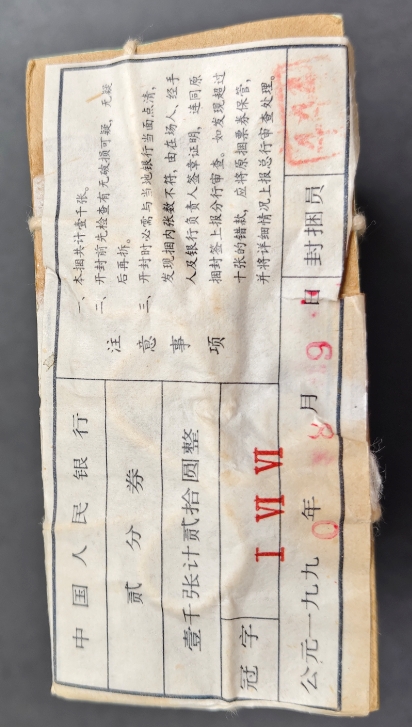 中国人民银行
贰分券
壹千张计贰拾圆整
冠字 I VI VI
公元一九九0年8月9日
封捆员
注意事项
一、本捆共计壹千张。
二、开封前先检查有无破损可疑，无疑
后再拆。
三、开封时必需与当地银行当面点清，
发现捆内张数不符，由在场人、经手
人及银行负责人签章证明，连同原
捆封签上报分行审查。如发现超过
十张的错款，应将原捆票券保管，
并将详细情况上报总行审查处理。